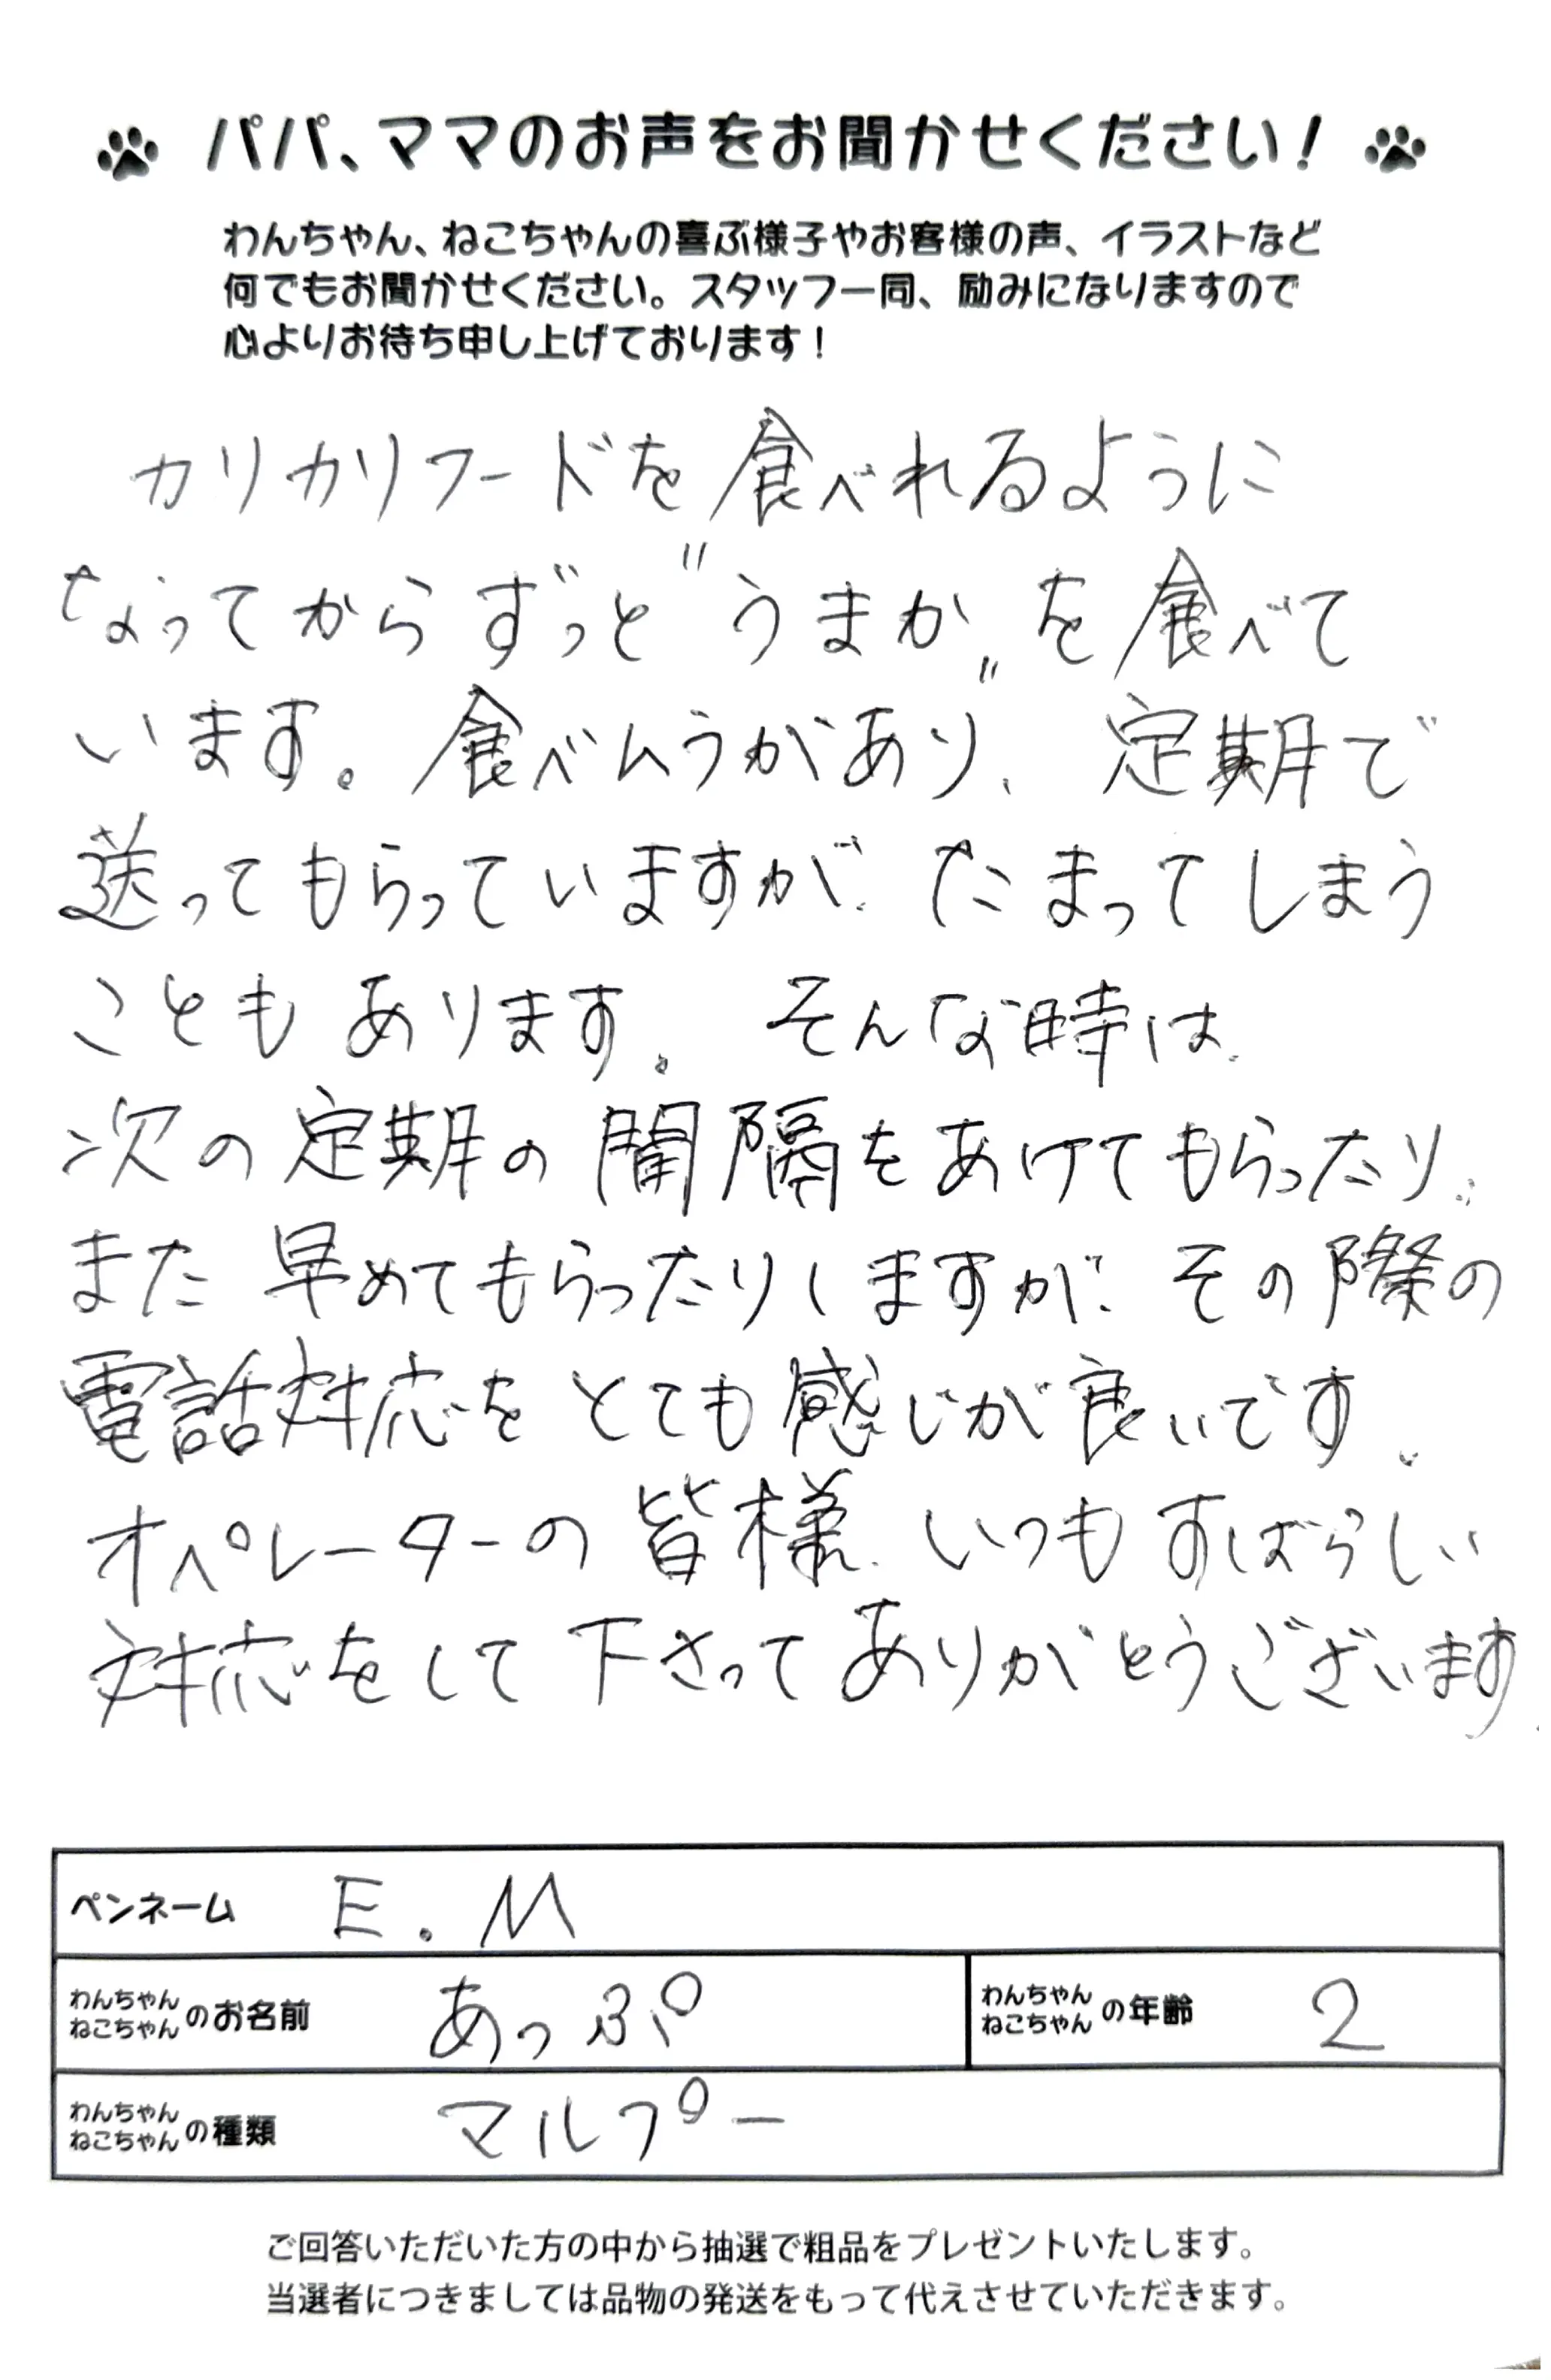 パパ、ママのお声をお聞かせください！
わんちゃん、ねこちゃんの喜ぶ様子やお客様の声、イラストなど
何でもお聞かせください。スタッフ一同、励みになりますので
心よりお待ち申し上げております！
カリカリフードを食べれるように
なってからずっと"うまか"を食べて
います。食べムラがあり、定期で
送ってもらっていますが、たまってしまう
こともあります。そんな時は、
次の定期の間隔をあけてもらったり、
また早めてもらったりしますが、その際の
電話対応をとても感じが良いです。
オペレーターの皆様、いつもすばらしい
対応をして下さってありがとうございます。
ペンネーム E.M
わんちゃんねこちゃんのお名前 あっぷ わんちゃんねこちゃんの年齢 2
わんちゃんねこちゃんの種類 マルプー
ご回答いただいた方の中から抽選で粗品をプレゼントいたします。
当選者につきましては品物の発送をもって代えさせていただきます。